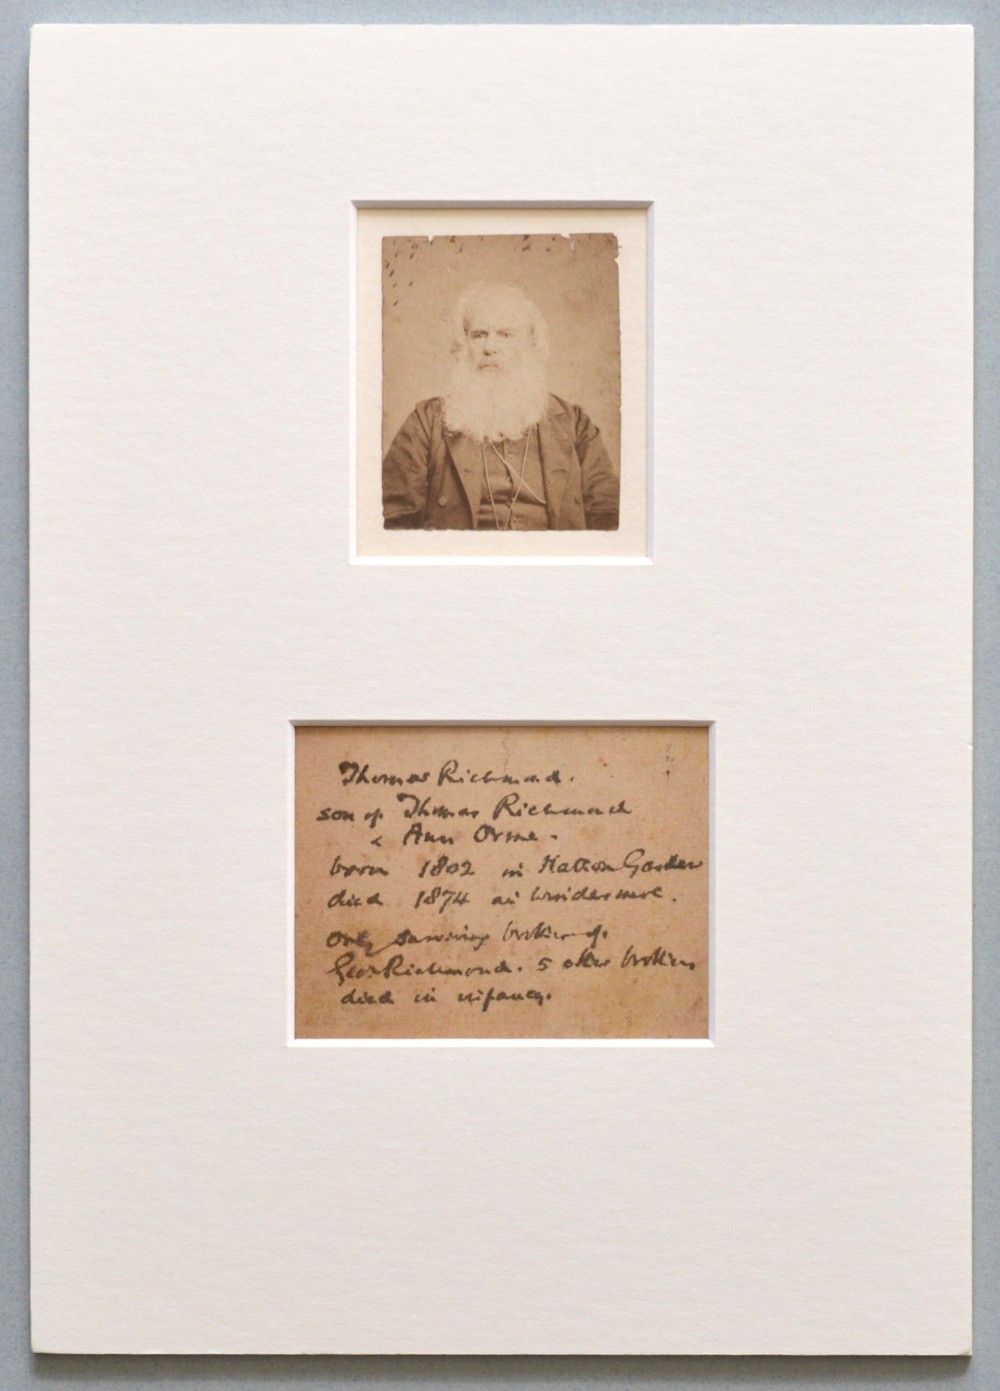 Thomas Richmond.
son of Thomas Richmond
& Ann Orme.
born 1802 in Hatton Garden
died 1874 at Windermere.
only surviving brother of
Geo: Richmond. 5 other brothers
died in infancy.